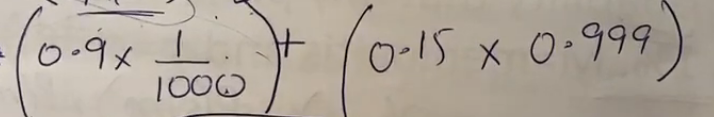 (0.9 × 1/1000) + (0.15 × 0.999)